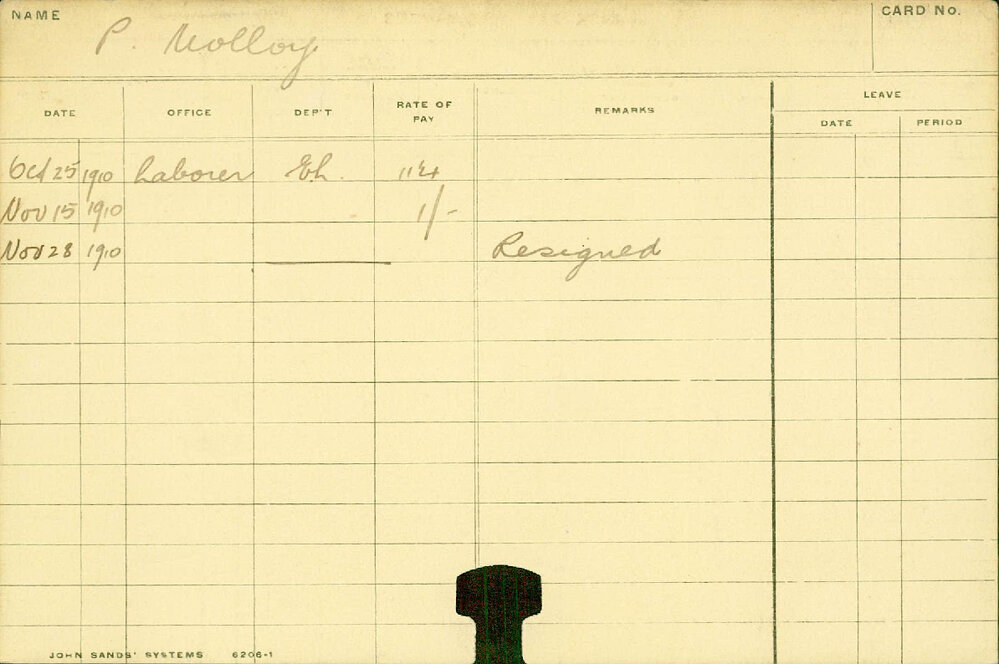 NAME P. Molloy CARD No.
DATE OFFICE DEP'T RATE OF PAY REMARKS LEAVE
DATE PERIOD
Oct 25 1910 Laborer
Nov 15 1910 1/-
Nov 28 1910 Resigned
JOHN SANDS' SYSTEMS 6206-1